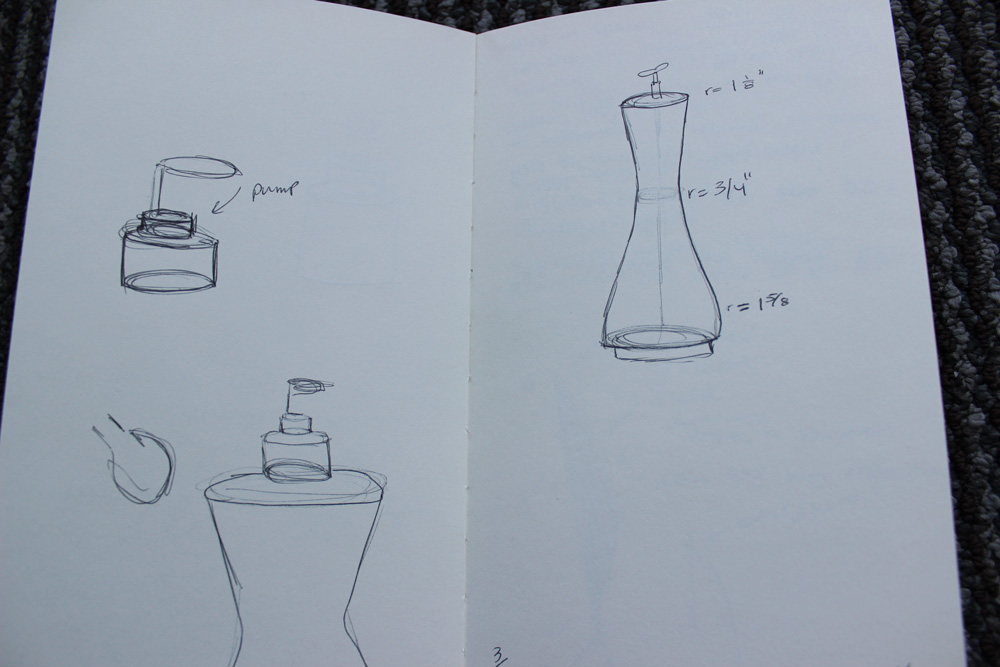 pump
r= 1 1/8"
r= 3/4"
r= 1 5/8
3